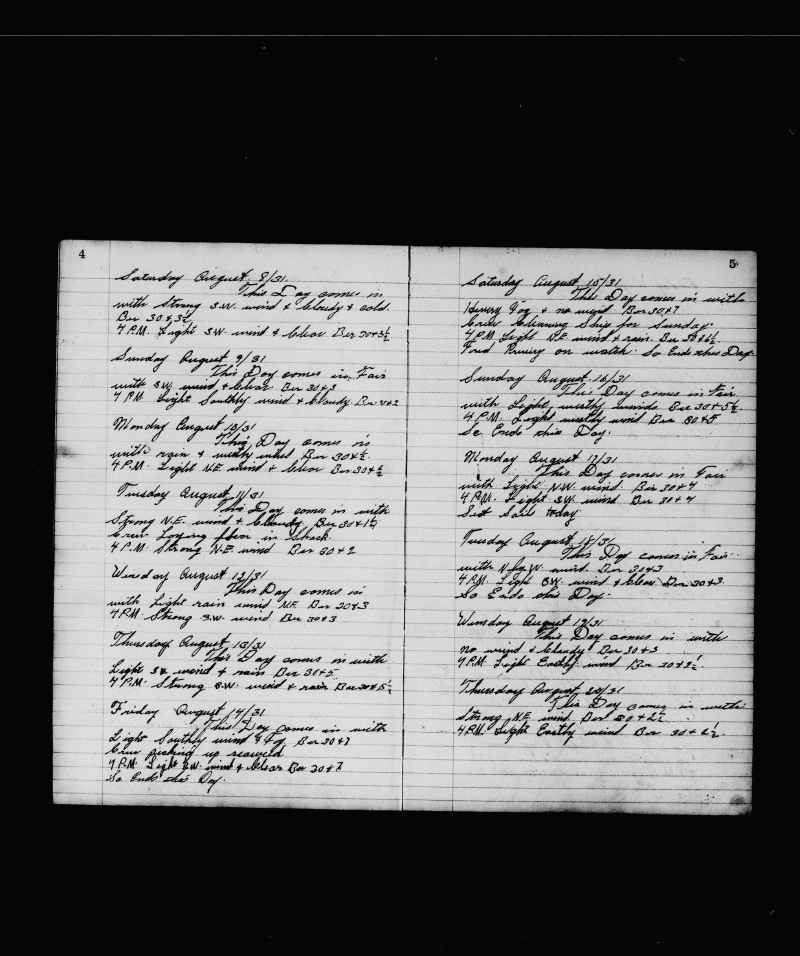 4
Saturday August 8/31.
This Day comes in
with Strong S.W. wind & Cloudy & cold.
Bar 30&3½
4 P.M. Light S.W. wind & Clear Bar 30&3½
Sunday August 9/31
This Day comes in Fair
with S.W. wind & Clear Bar 30&3
4 P.M. Light Southly wind & Cloudy Bar
Monday August 10/31
This Day comes in
with rain & westly wind Bar 30&½
4 P.M. Light N.E. wind & Clear Bar 30&½
Tuesday August 11/31
This Day comes in with
Strong N.E. wind & Cloudy Bar 30&1½
Crew Laying floor in Shack
4 P.M. Strong N.E. wind Bar 30&2
Wensday August 12/31
This Day comes in
with Light rain wind N.E. Bar 30&3
4 P.M. Strong S.W. wind Bar 30&3
Thursday August 13/31
This Day comes in with
Light S.W. wind & rain Bar 30&5
4 P.M. Strong S.W. wind & rain Bar 30&5½
Friday August 14/31
This Day comes in with
Light Southly wind & Fog Bar 30&7
Crew picking up seaweed
4 P.M. Light S.W. wind & Clear Bar 30&7
So Ends this Day.
5
Saturday August 15/31
This Day comes in with
Heavy Fog & no wind Bar 30&7
Crew Cleaning Ship for Sunday.
4 P.M. Light N.E. wind & rain. Bar 30&6½
on watch. So Ends this Day
Sunday August 16/31
This Day comes in Fair
with Light westly winds Bar 30&5½.
4 P.M. Light westly wind Bar 30&5
So Ends this Day.
Monday August 17/31
This Day comes in Fair
with Light N.W. wind. Bar 30&4
4 P.M. Light S.W. wind Bar 30&4
Sail day
Tuesday August 18/31
This Day comes in Fair
with N by W. wind. Bar 30&3
4 P.M. Light S.W. wind & Clear Bar 30&3
So Ends this Day.
Wensday August 19/31
This Day comes in with
no wind & Cloudy Bar 30&3
4 P.M. Light Eastly wind Bar 30&2½
Thursday August 20/31
This Day comes in with
Strong N.E. wind Bar 30&2½
4 P.M. Light Eastly wind Bar 30&2½